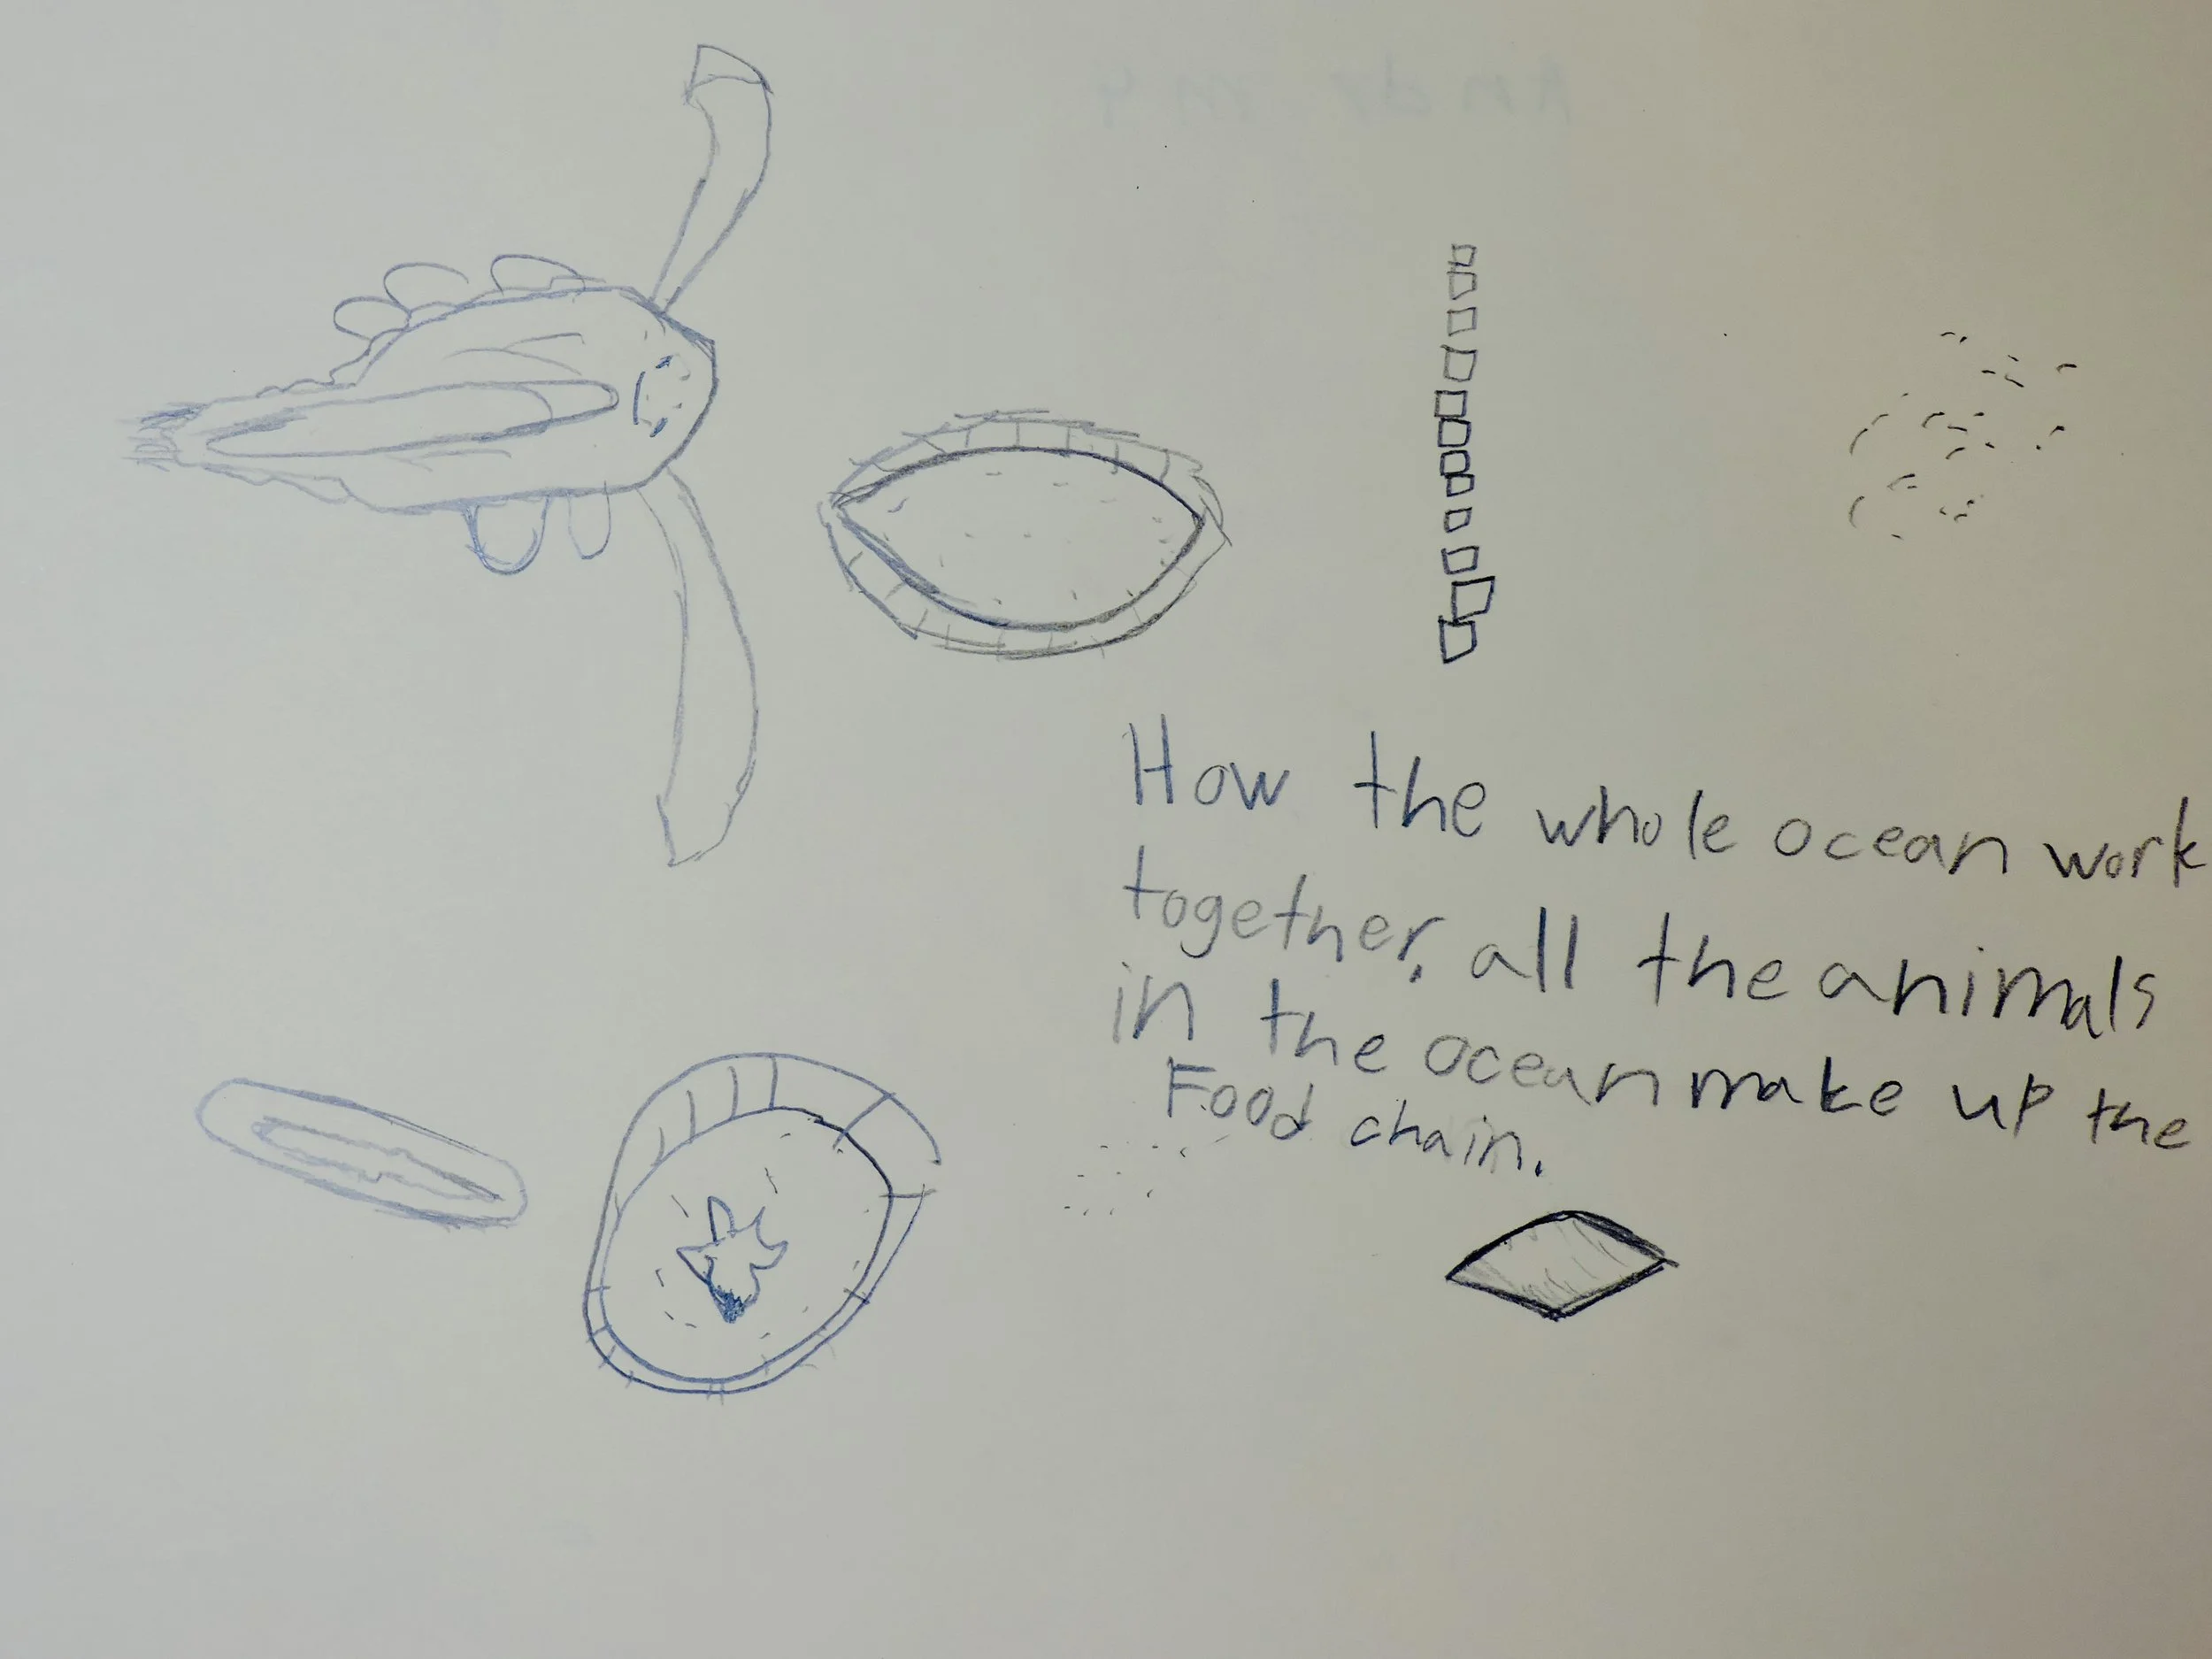 How the whole ocean work
together, all the animals
in the ocean make up the
Food chain.